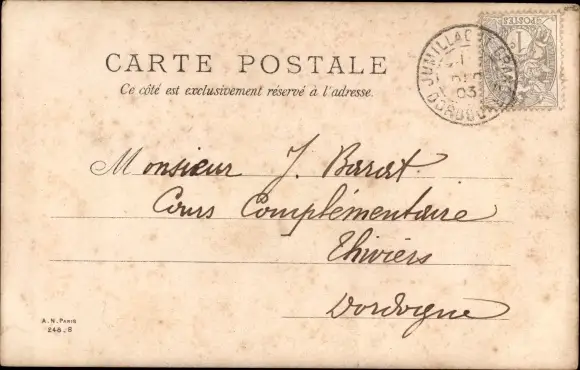 CARTE POSTALE
Ce côté est exclusivement réservé à l'adresse.
JUMILLAC
DORDOGNE
1
DEC
03
POSTES
1
Monsieur J. Barat
Cours Complémentaire
Thiviers
Dordogne
A.N. PARIS
248.8